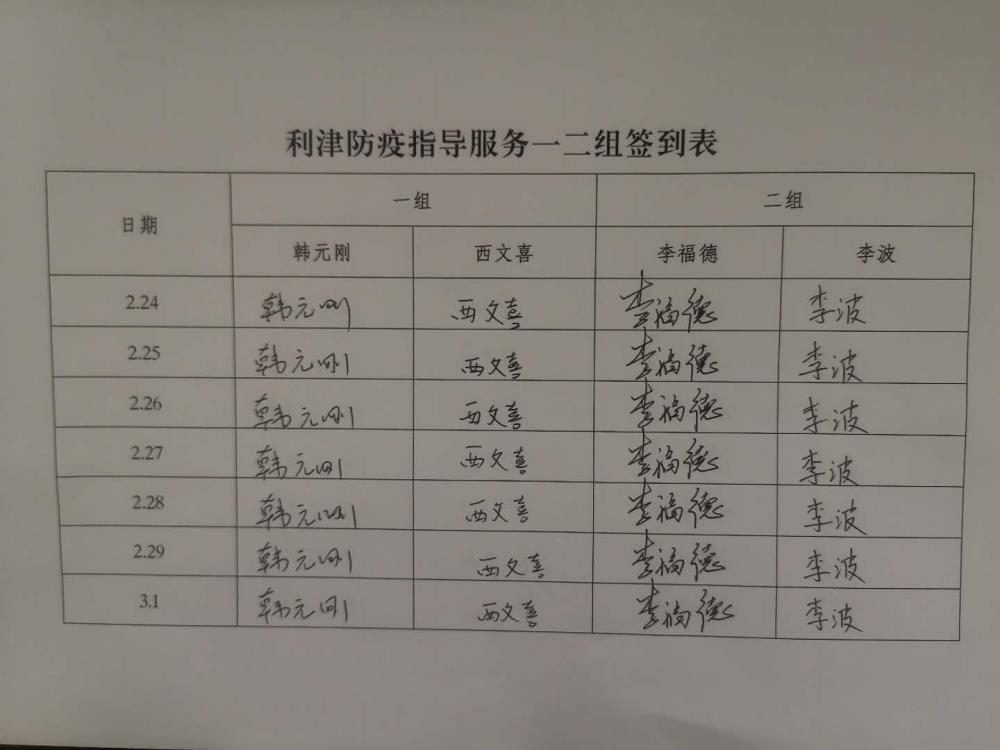 利津防疫指导服务一二组签到表
日期 一组 二组
韩元刚 西文喜 李福德 李波
2.24 韩元刚 西文喜 李福德 李波
2.25 韩元刚 西文喜 李福德 李波
2.26 韩元刚 西文喜 李福德 李波
2.27 韩元刚 西文喜 李福德 李波
2.28 韩元刚 西文喜 李福德 李波
2.29 韩元刚 西文喜 李福德 李波
3.1 韩元刚 西文喜 李福德 李波